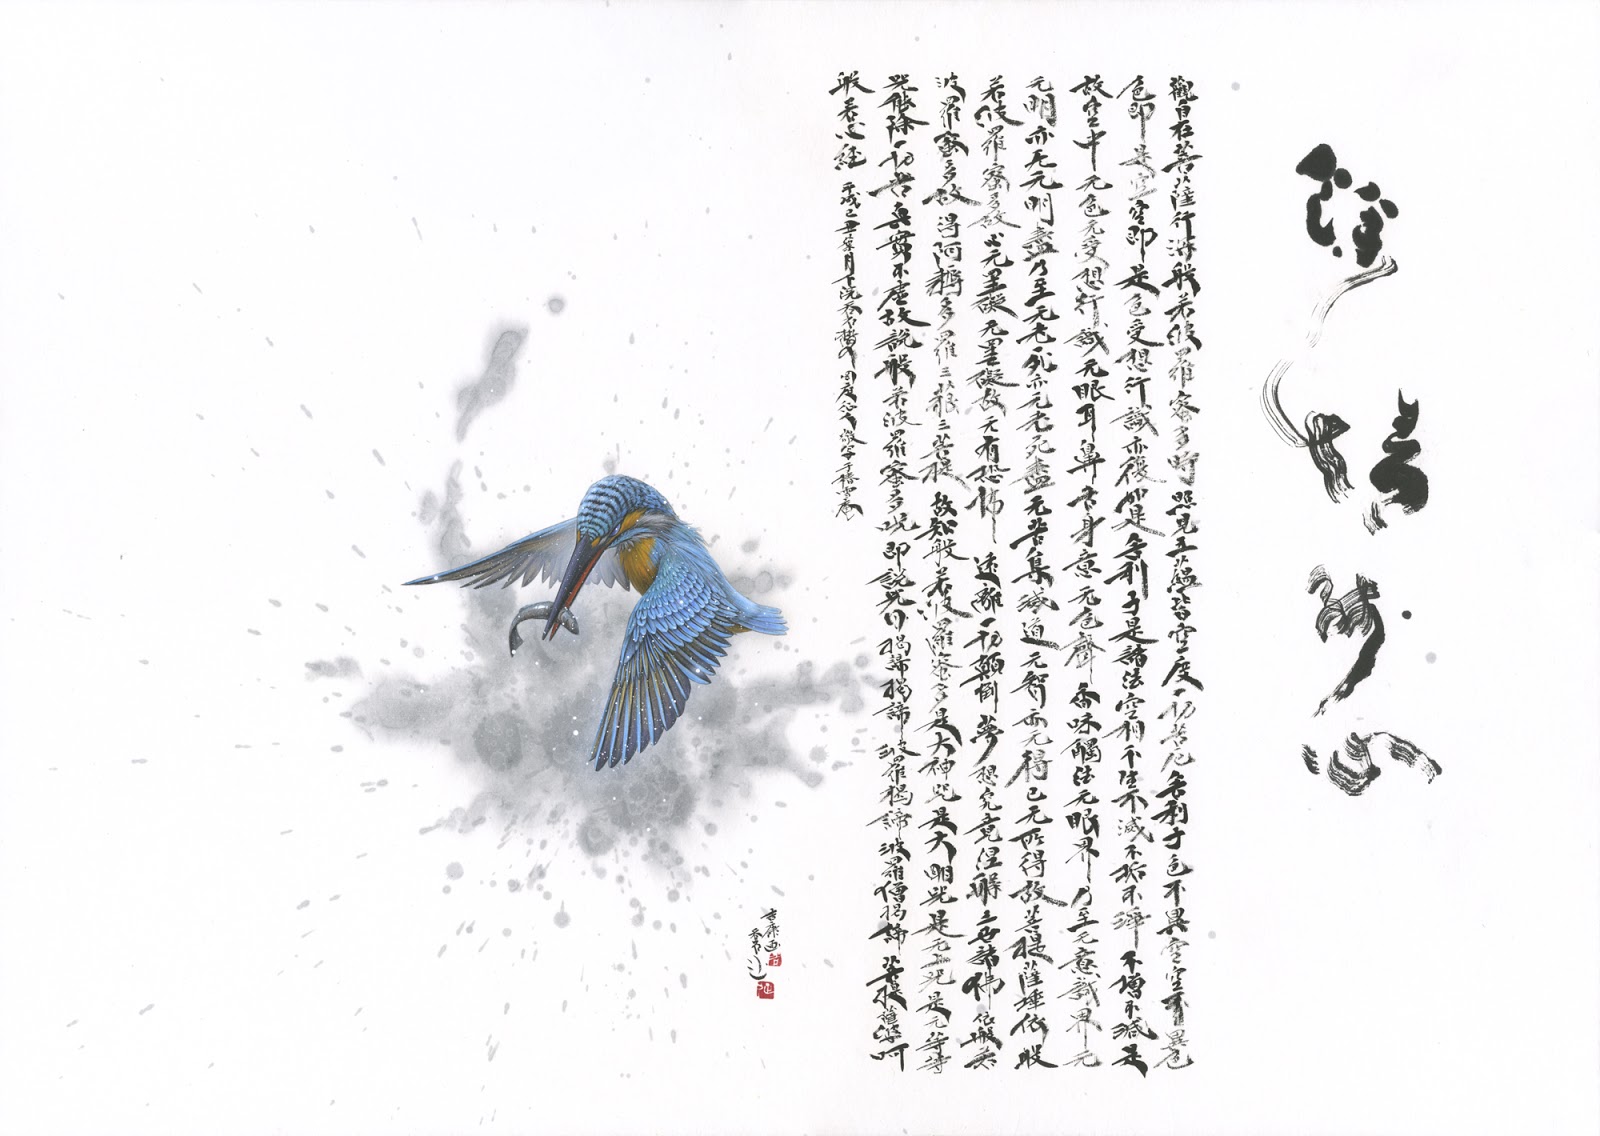 心
觀自在菩薩行深般若波羅蜜多時照見五蘊皆空度一切苦厄舍利子色不異空空不異色
色即是空空即是色受想行識亦復如是舍利子是諸法空相不生不滅不垢不淨不增不減是
故空中无色无受想行識无眼耳鼻舌身意无色聲香味觸法无眼界乃至无意識界无
无明亦无无明盡乃至无老死亦无老死盡无苦集滅道无智亦无得已无所得故菩提薩埵依般
若波羅蜜多故心无罣礙无罣礙故无有恐怖遠離一切顛倒夢想究竟涅槃三世諸佛依般若
波羅蜜多故得阿耨多羅三藐三菩提故知般若波羅蜜多是大神咒是大明咒是无上咒是无等等
咒能除一切苦真實不虛故說般若波羅蜜多呪即說咒曰揭諦揭諦波羅揭諦波羅僧揭諦菩提薩婆呵
般若心經 平成己丑葉月下浣